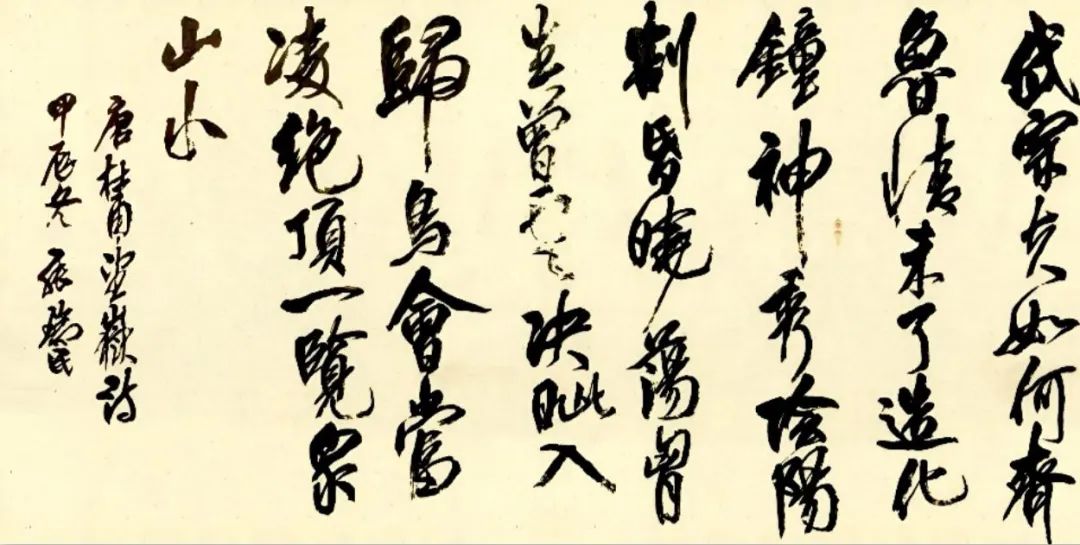 岱宗夫如何齊
魯清未了造化
鐘神秀陰陽
割昏曉蕩胷
生曾雲决眦入
歸鳥會當
凌絶頂一覽眾
山小
唐杜甫望嶽詩
甲辰冬 張民